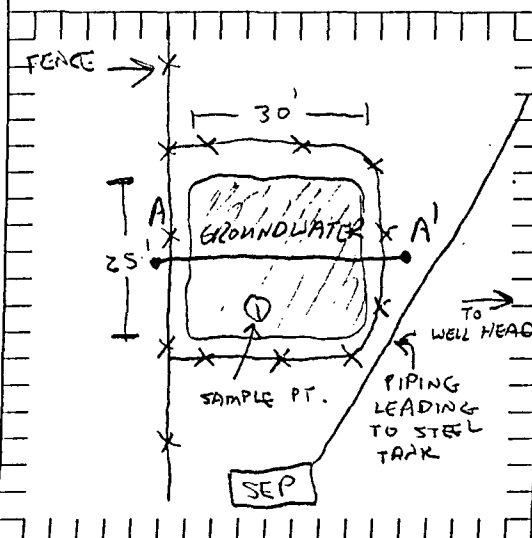 FENCE
30'
A
GROUNDWATER
A'
25'
①
SAMPLE PT.
TO
WELL HEAD
PIPING
LEADING
TO STEEL
TANK
SEP